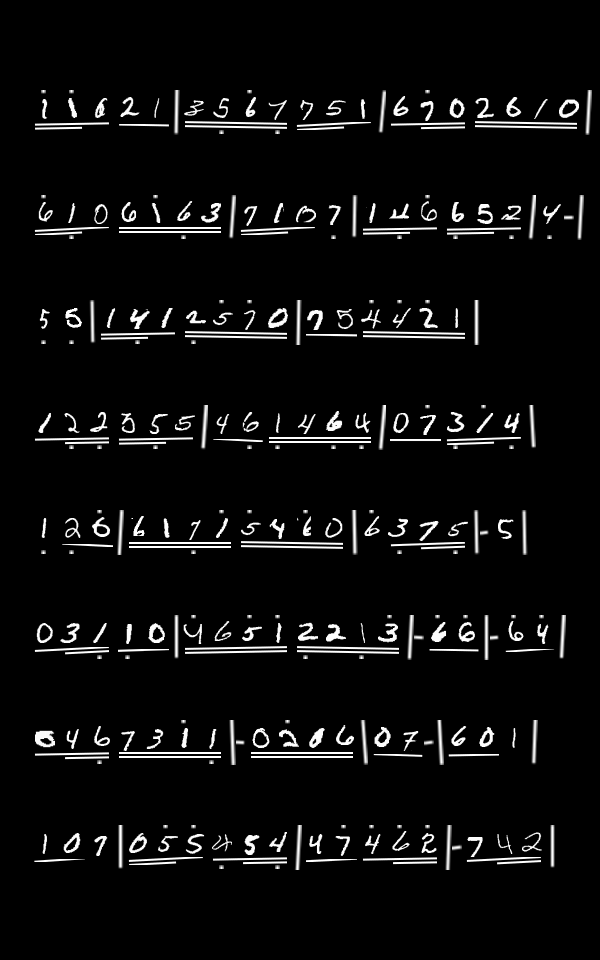 11621|3567751|6702610
6106163|7107|146652|4-
55|1412570|754421|
122355|461464|07314|
126|61715460|6375|-5|
03110|46512213|-66|-64|
0467311|-0206|07-|601|
107|055454|47462|-742|